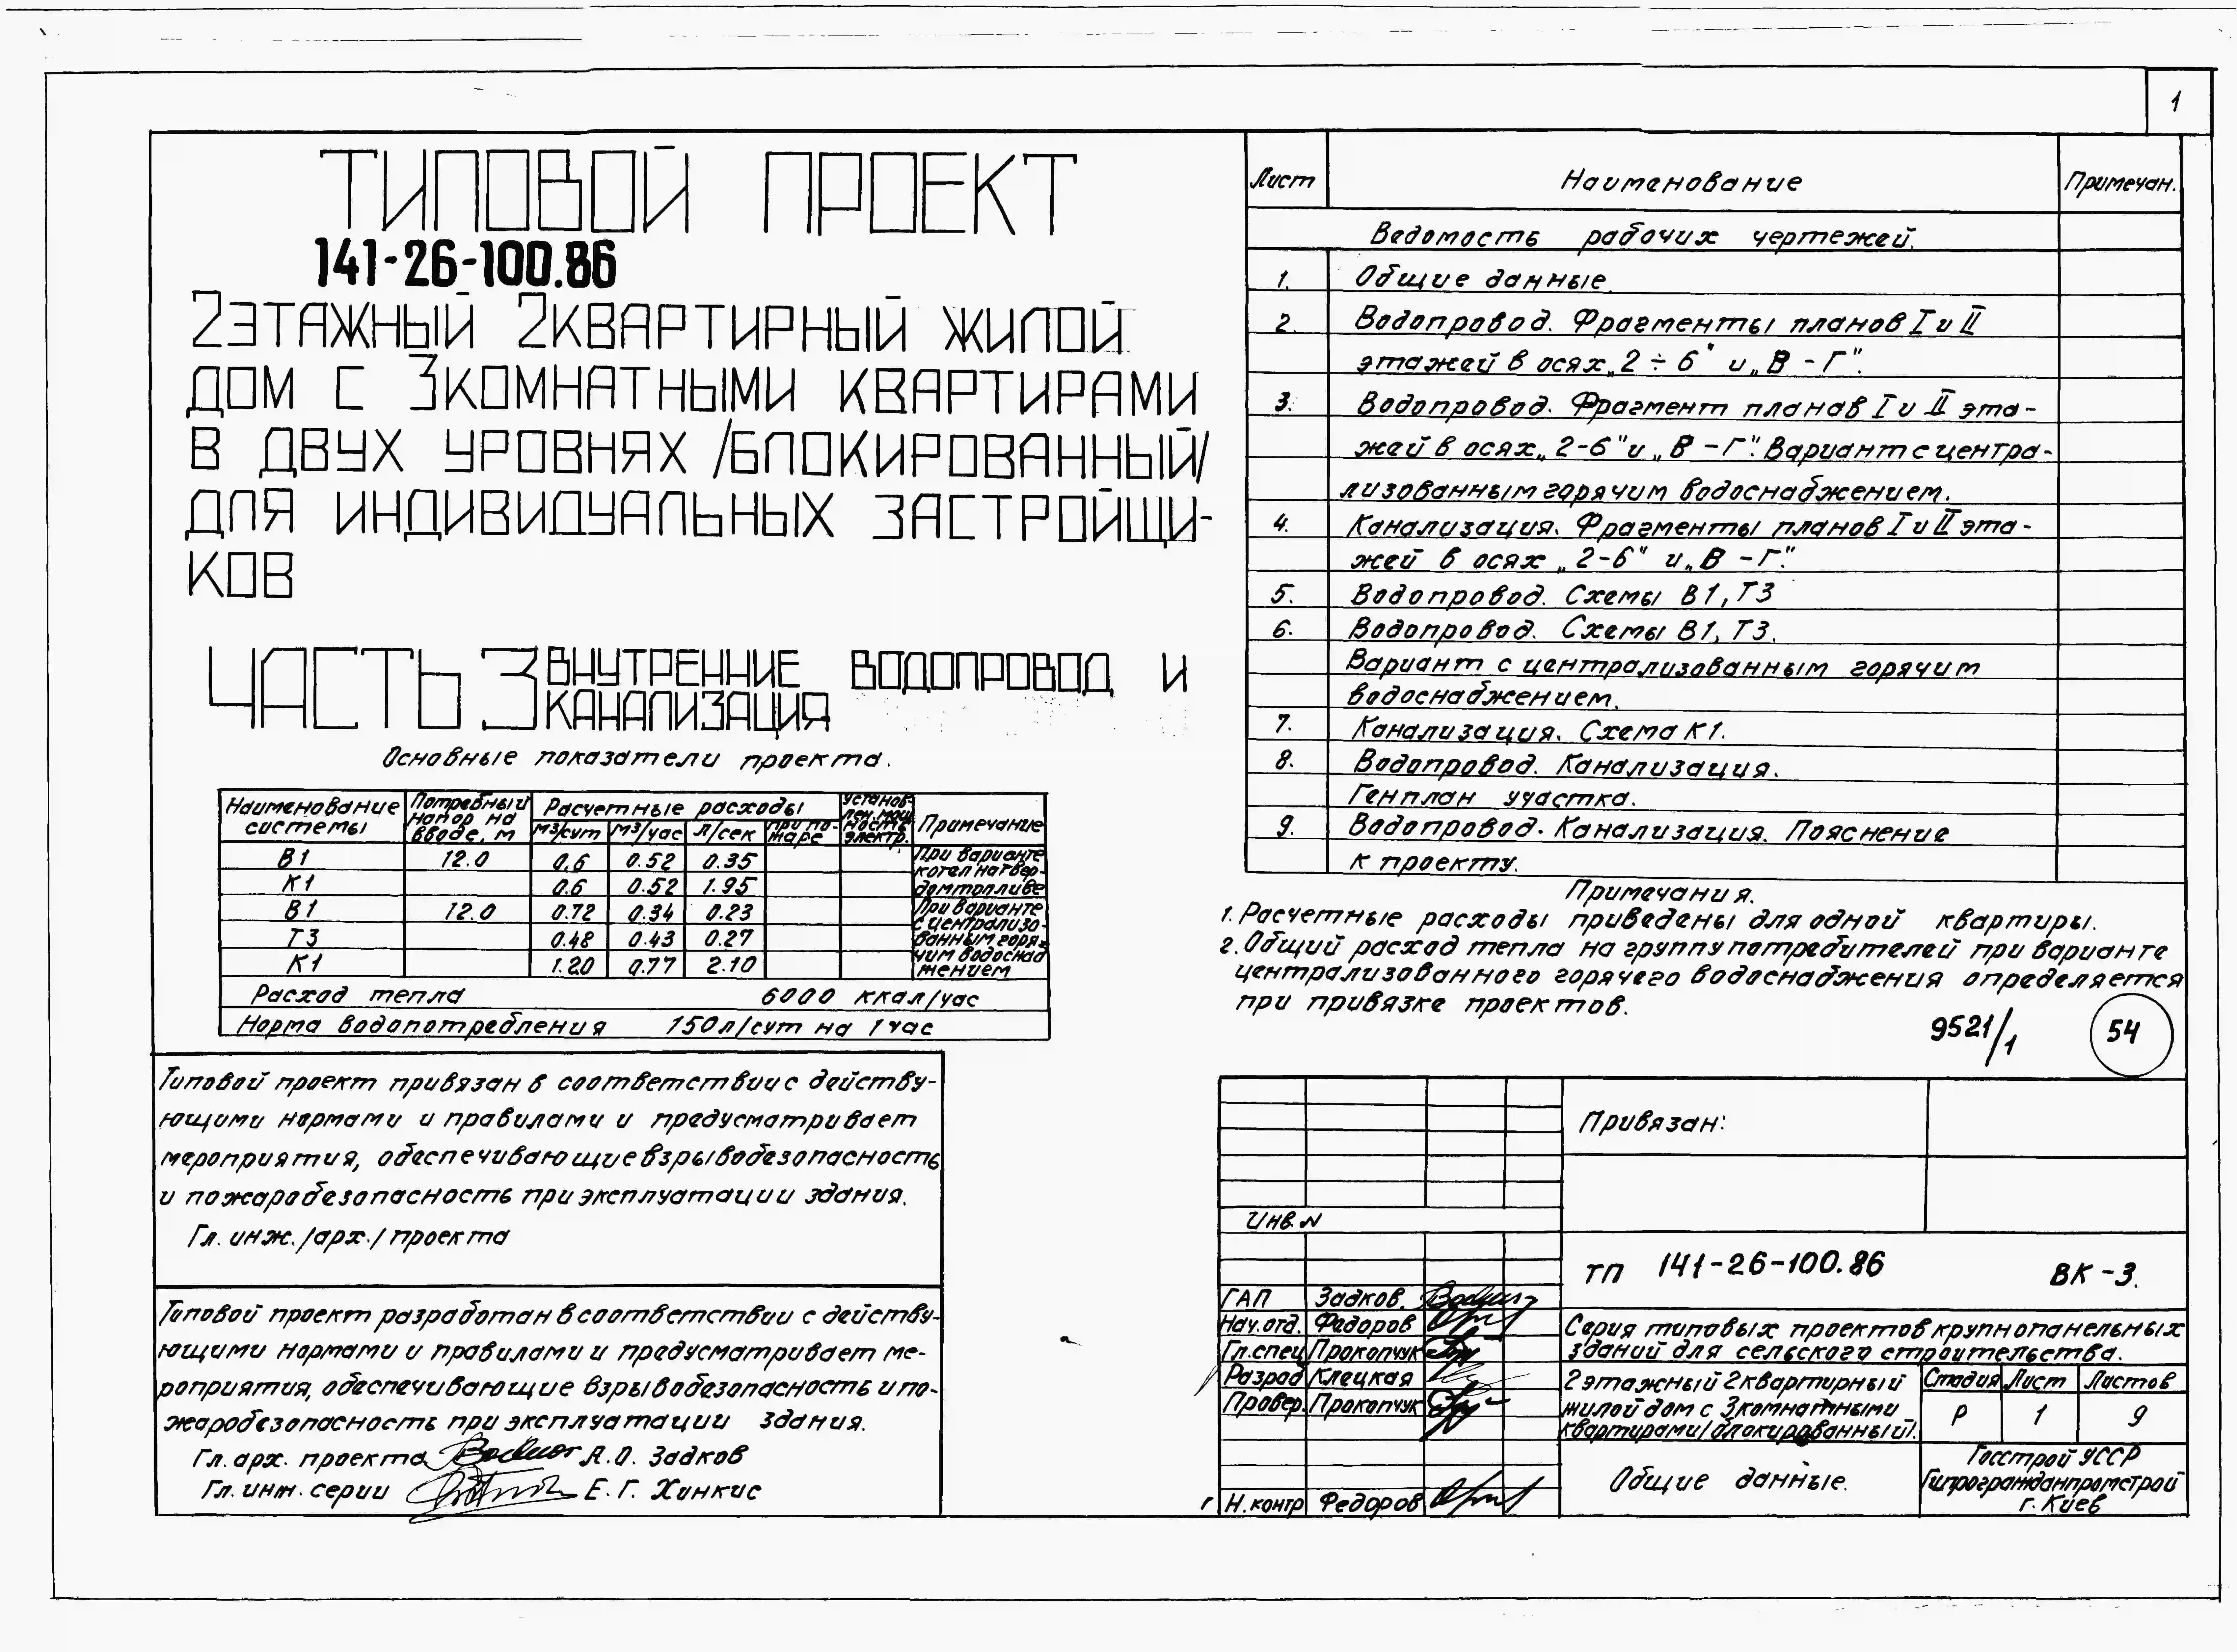 1
ТИПОВОЙ ПРОЕКТ
141-26-100.86
2ЭТАЖНЫЙ 2КВАРТИРНЫЙ ЖИЛОЙ
ДОМ С 3КОМНАТНЫМИ КВАРТИРАМИ
В ДВУХ УРОВНЯХ /БЛОКИРОВАННЫЙ/
ДЛЯ ИНДИВИДУАЛЬНЫХ ЗАСТРОЙЩИ-
КОВ
ЧАСТЬ 3 ВНУТРЕННИЕ ВОДОПРОВОД И
КАНАЛИЗАЦИЯ
Основные показатели проекта.
Наименование системы Потребный напор на вводе, м Расчетные расходы Установ- лен. мощ ность электр. Примечание
м3/сут м3/час л/сек при по- жаре
В1 12.0 0.6 0.52 0.35 При варианте
К1 0.6 0.52 1.95 котел на твер- дом топливе
В1 12.0 0.72 0.34 0.23 При варианте
Т3 0.48 0.43 0.27 с централизо- ванным горя-
К1 1.20 0.77 2.10 чим водоснаб жением
Расход тепла 6000 ккал/час
Норма водопотребления 150л/сут на 1 час
Типовой проект привязан в соответствии с действу-
ющими нормами и правилами и предусматривает
мероприятия, обеспечивающие взрывобезопасность
и пожаробезопасность при эксплуатации здания.
Гл. инж. /арх./ проекта
Типовой проект разработан в соответствии с действу-
ющими нормами и правилами и предусматривает ме-
роприятия, обеспечивающие взрывобезопасность и по-
жаробезопасность при эксплуатации здания.
Гл. арх. проекта А.О. Задков
Гл. инж. серии Е.Г. Хинкис
Лист Наименование Примечан.
Ведомость рабочих чертежей.
1. Общие данные.
2. Водопровод. Фрагменты планов I и II
этажей в осях „2 ÷ 6" и „В - Г".
3. Водопровод. Фрагмент планав I и II эта-
жей в осях „2-6" и „В - Г". Вариант с центра-
лизованным горячим водоснабжением.
4. Канализация. Фрагменты планов I и II эта-
жей в осях „2-6" и „В - Г".
5. Водопровод. Схемы В1, Т3
6. Водопровод. Схемы В1, Т3.
Вариант с централизованным горячим
водоснабжением.
7. Канализация. Схема К1.
8. Водопровод. Канализация.
Генплан участка.
9. Водопровод. Канализация. Пояснение
к проекту.
Примечания.
1. Расчетные расходы приведены для одной квартиры.
2. Общий расход тепла на группу потребителей при варианте
централизованного горячего водоснабжения определяется
при привязке проектов.
9521/1 54
Привязан:
Инв. N
ТП 141-26-100.86 ВК-3.
ГАП Задков.
Нач. отд. Федоров
Гл. спец Прокопчук
Разраб Клецкая
Провер. Прокопчук
Н. контр Федоров
Серия типовых проектов крупнопанельных
зданий для сельского строительства.
2этажный 2квартирный
жилой дом с 3комнатными
квартирами /блокированный/.
Стадия Лист Листов
Р 1 9
Общие данные.
Госстрой УССР
Гипрогражданпромстрой
г. Киев